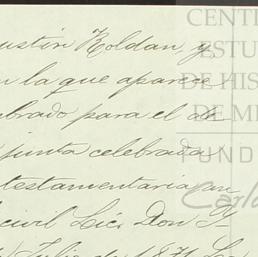 ustin Roldan, y
n la que aparece
brado para el de
junta celebrada
testamentaria
civil Lics Don
Julio de 1871
CENT
ESTU
DE HIS
DE M
FUND
Carlo